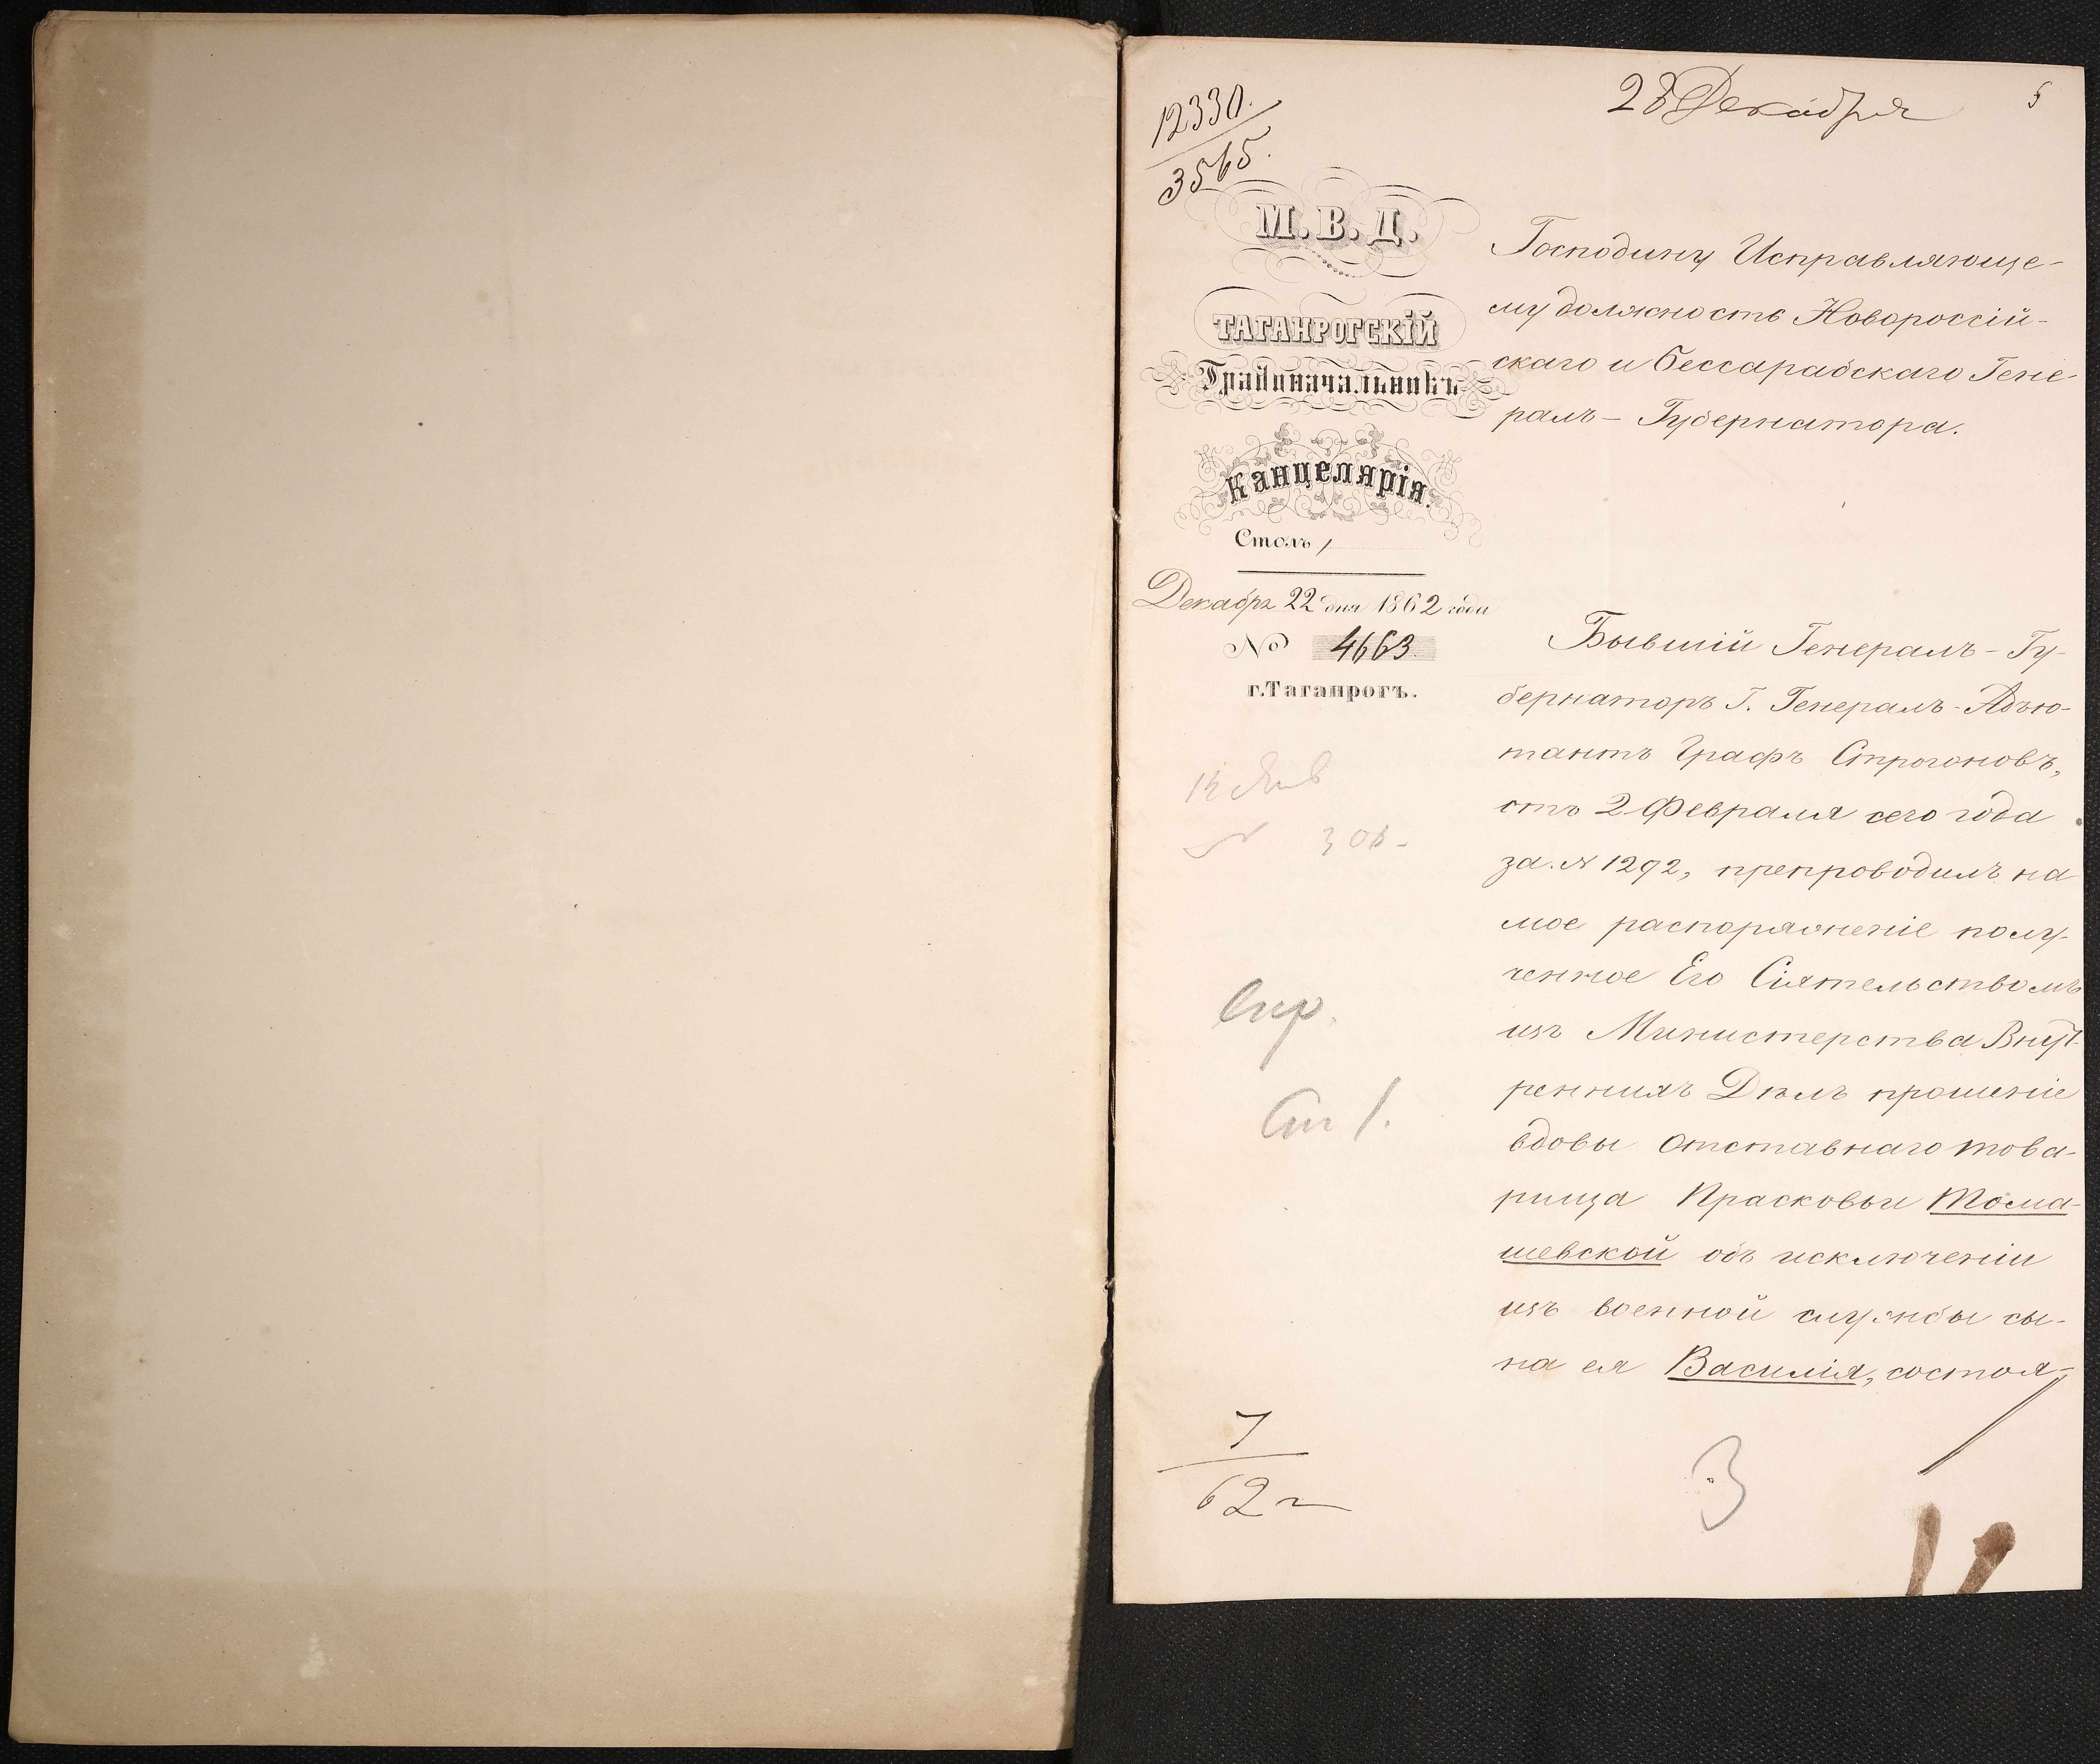 12330.
3565.
28 Декабря
5
М. В. Д.
ТАГАНРОГСКІЙ
Градоначальникъ
Канцелярія.
Столъ 1
Декабря 22 дня 1862 года
№ 4663
г. Таганрогъ.
Спр.
Ст 1.
7
62 г
Господину Исправляюще-
му должность Новороссій-
скаго и Бессарабскаго Гене-
ралъ - Губернатора.
Бывшій Генералъ - Гу-
бернаторъ Г. Генералъ - Адъю-
тантъ Графъ Строгоновъ,
отъ 2 Февраля сего года
за № 1292, препроводилъ на
мое распоряженіе полу-
ченное Его Сіятельствомъ
изъ Министерства Внут-
реннихъ Дѣлъ прошеніе
вдовы отставнаго това-
рища Прасковьи Тома-
шевской объ исключеніи
изъ военной службы сы-
на ея Василія, состоя-